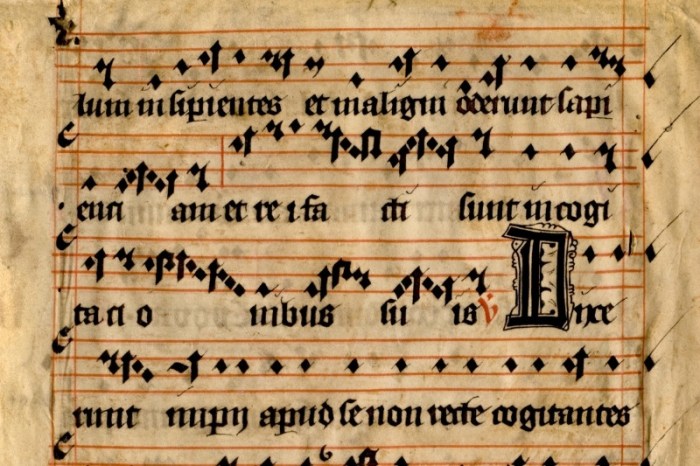 lum insipientes et maligni oderunt sapi
enci am et re i fa cti sunt in cogi
ta ci o nibus su is ℣ Dixe
runt impii apud se non recte cogitantes